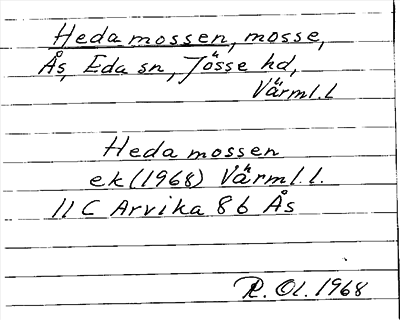 Heda mossen, mosse,
Ås, Eda sn, Jösse hd,
Värml.l
Heda mossen
ek (1968) Värml.l.
11 C Arvika 8 b Ås
R. Ol. 1968